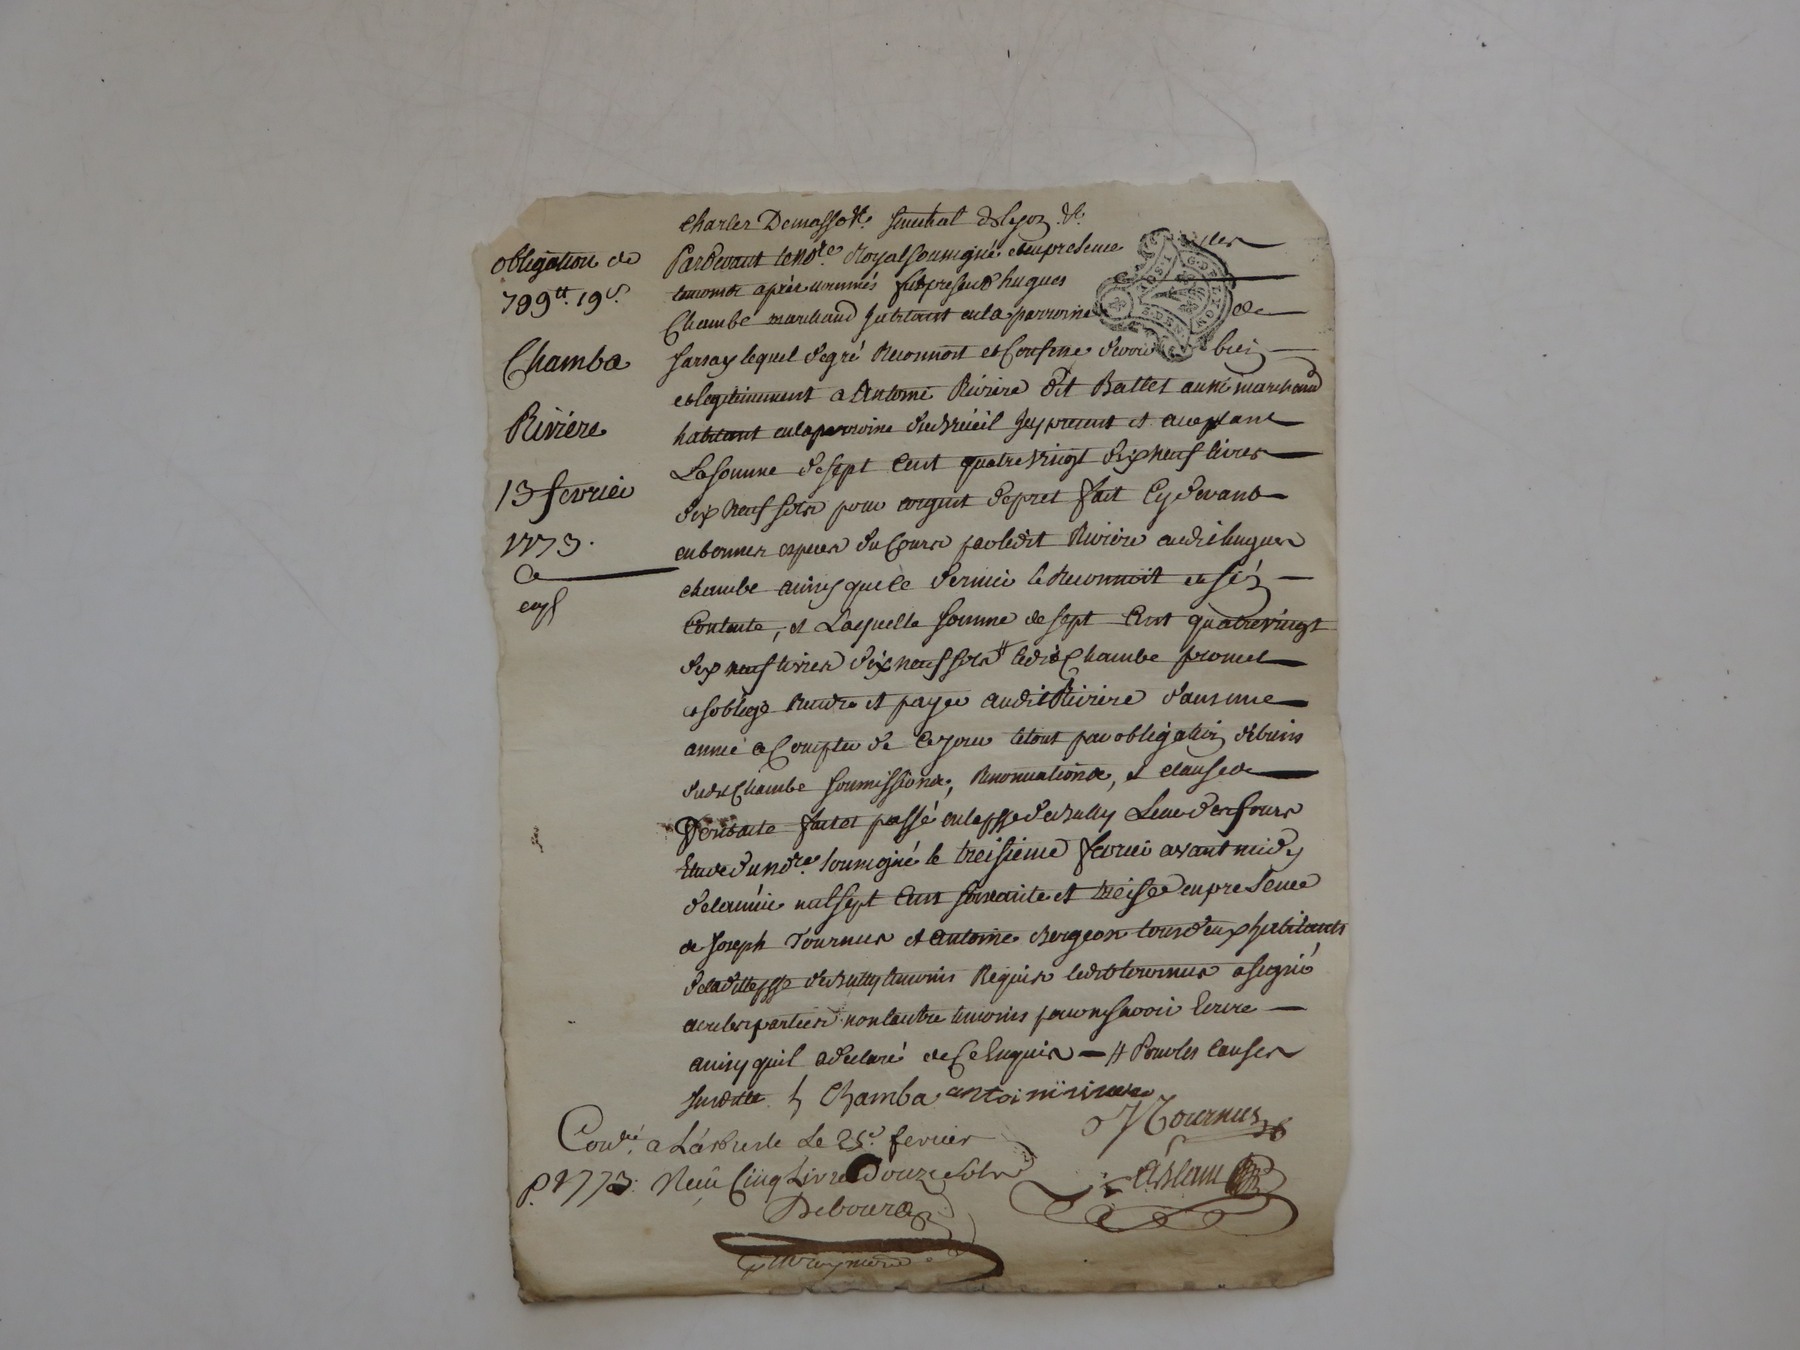 Charles Demasso &c. senechal de lyon &c.
obligation de
799tt. 19s.
Chamba
Riviere
13 fevrier
1773.
Pardevant le no.re Royal soussigné et en presence des
temoins après nommés fut present hugues
Chambe marchand habitant en la parroisse de
Sarsay lequel de gré Reconnoit et Confesse devoir bien
et legitimement a Antoine Riviere dit Battet aussi marchand
habitant en la parroisse icy present et acceptant
La somme de sept Cent quatre vingt dix neuf livres
dix neuf sols pour argent de pret fait Cy devant
en bonnes especes du Cours par ledit Riviere audit hugues
chambe ainsy que ce dernier le Reconnoit et s'en
Contente, et Laquelle somme de sept Cent quatre vingt
dix neuf livres dix neuf sols # ledit Chambe promet
et s'oblige Rendre et payer audit Riviere dans une
année a Compter de Ce jour le tout par obligation de biens
dudit Chambe soumissions, Renonciations, et clauses
Dont acte fait et passé en la ppsse de Bully Lieu des fours
Etude du no.re soussigné le treisieme fevrier avant midy
de l'année mil sept Cent soixante et treise en presence
de Joseph Tournus et Antoine Bergeon tous deux habitants
de ladite ppsse de Bully temoins Requis ledit tournus a signé
avec les parties non l'autre temoins pour ne savoir Ecrire
ainsy quil a declaré de Ce Enquis — # Pour les causes
susdittes h Chamba antoin riviere
J Tournus
Con.lé a Larbresle Le 25.e fevrier
1773. Reçu Cinq Livres Douze sols
Debourg